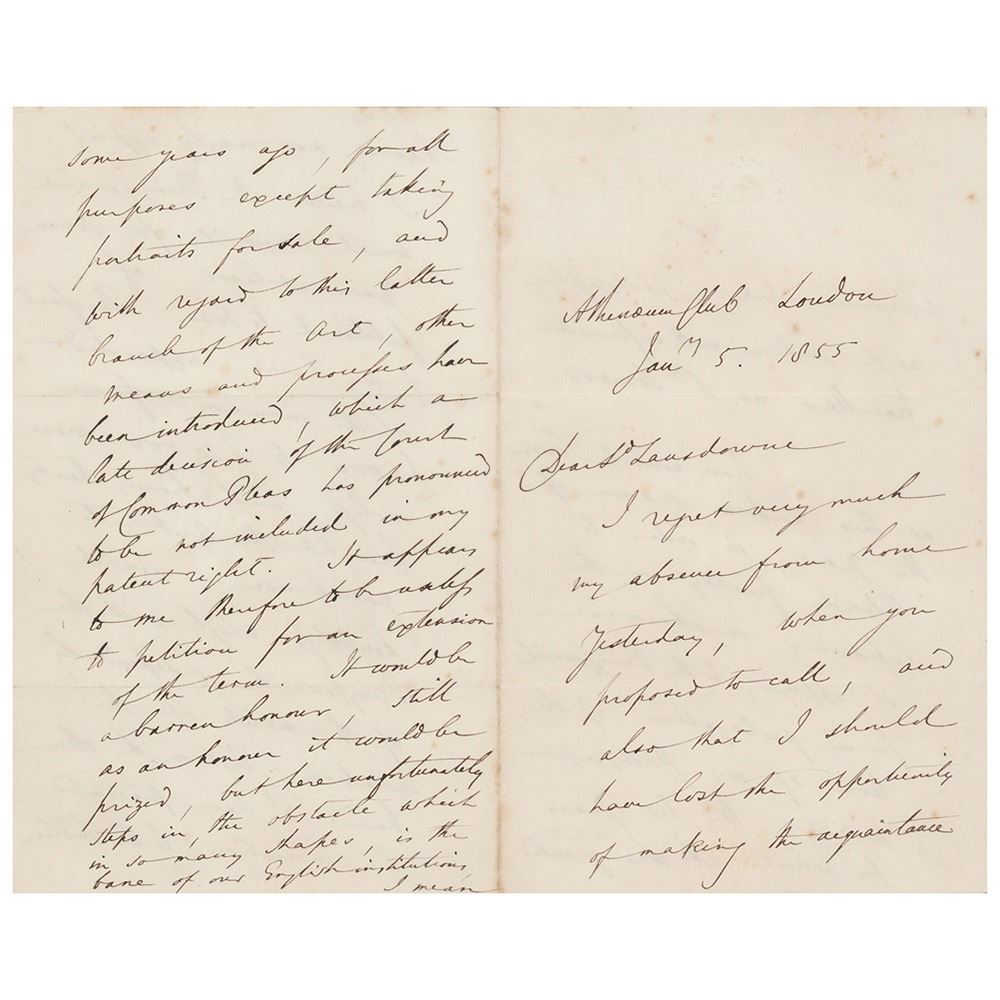 Athenæum Club London
Jan^ry 5. 1855
Dear L^d Lansdowne
I regret very much
my absence from home
Yesterday, when you
proposed to call, and
also that I should
have lost the opportunity
of making the acquaintance
some years ago, for all
purposes except taking
portraits for sale, and
with regard to this latter
branch of the Art, other
means and processes have
been introduced, which a
late decision of the Court
of Common Pleas has pronounced
to be not included in my
patent right. It appears
to me therefore to be useless
to petition for an extension
of the term. It would be
a barren honour, still
as an honour it would be
prized, but here unfortunately
steps in, the obstacle which
in so many shapes, is the
bane of our English institutions,
I mean